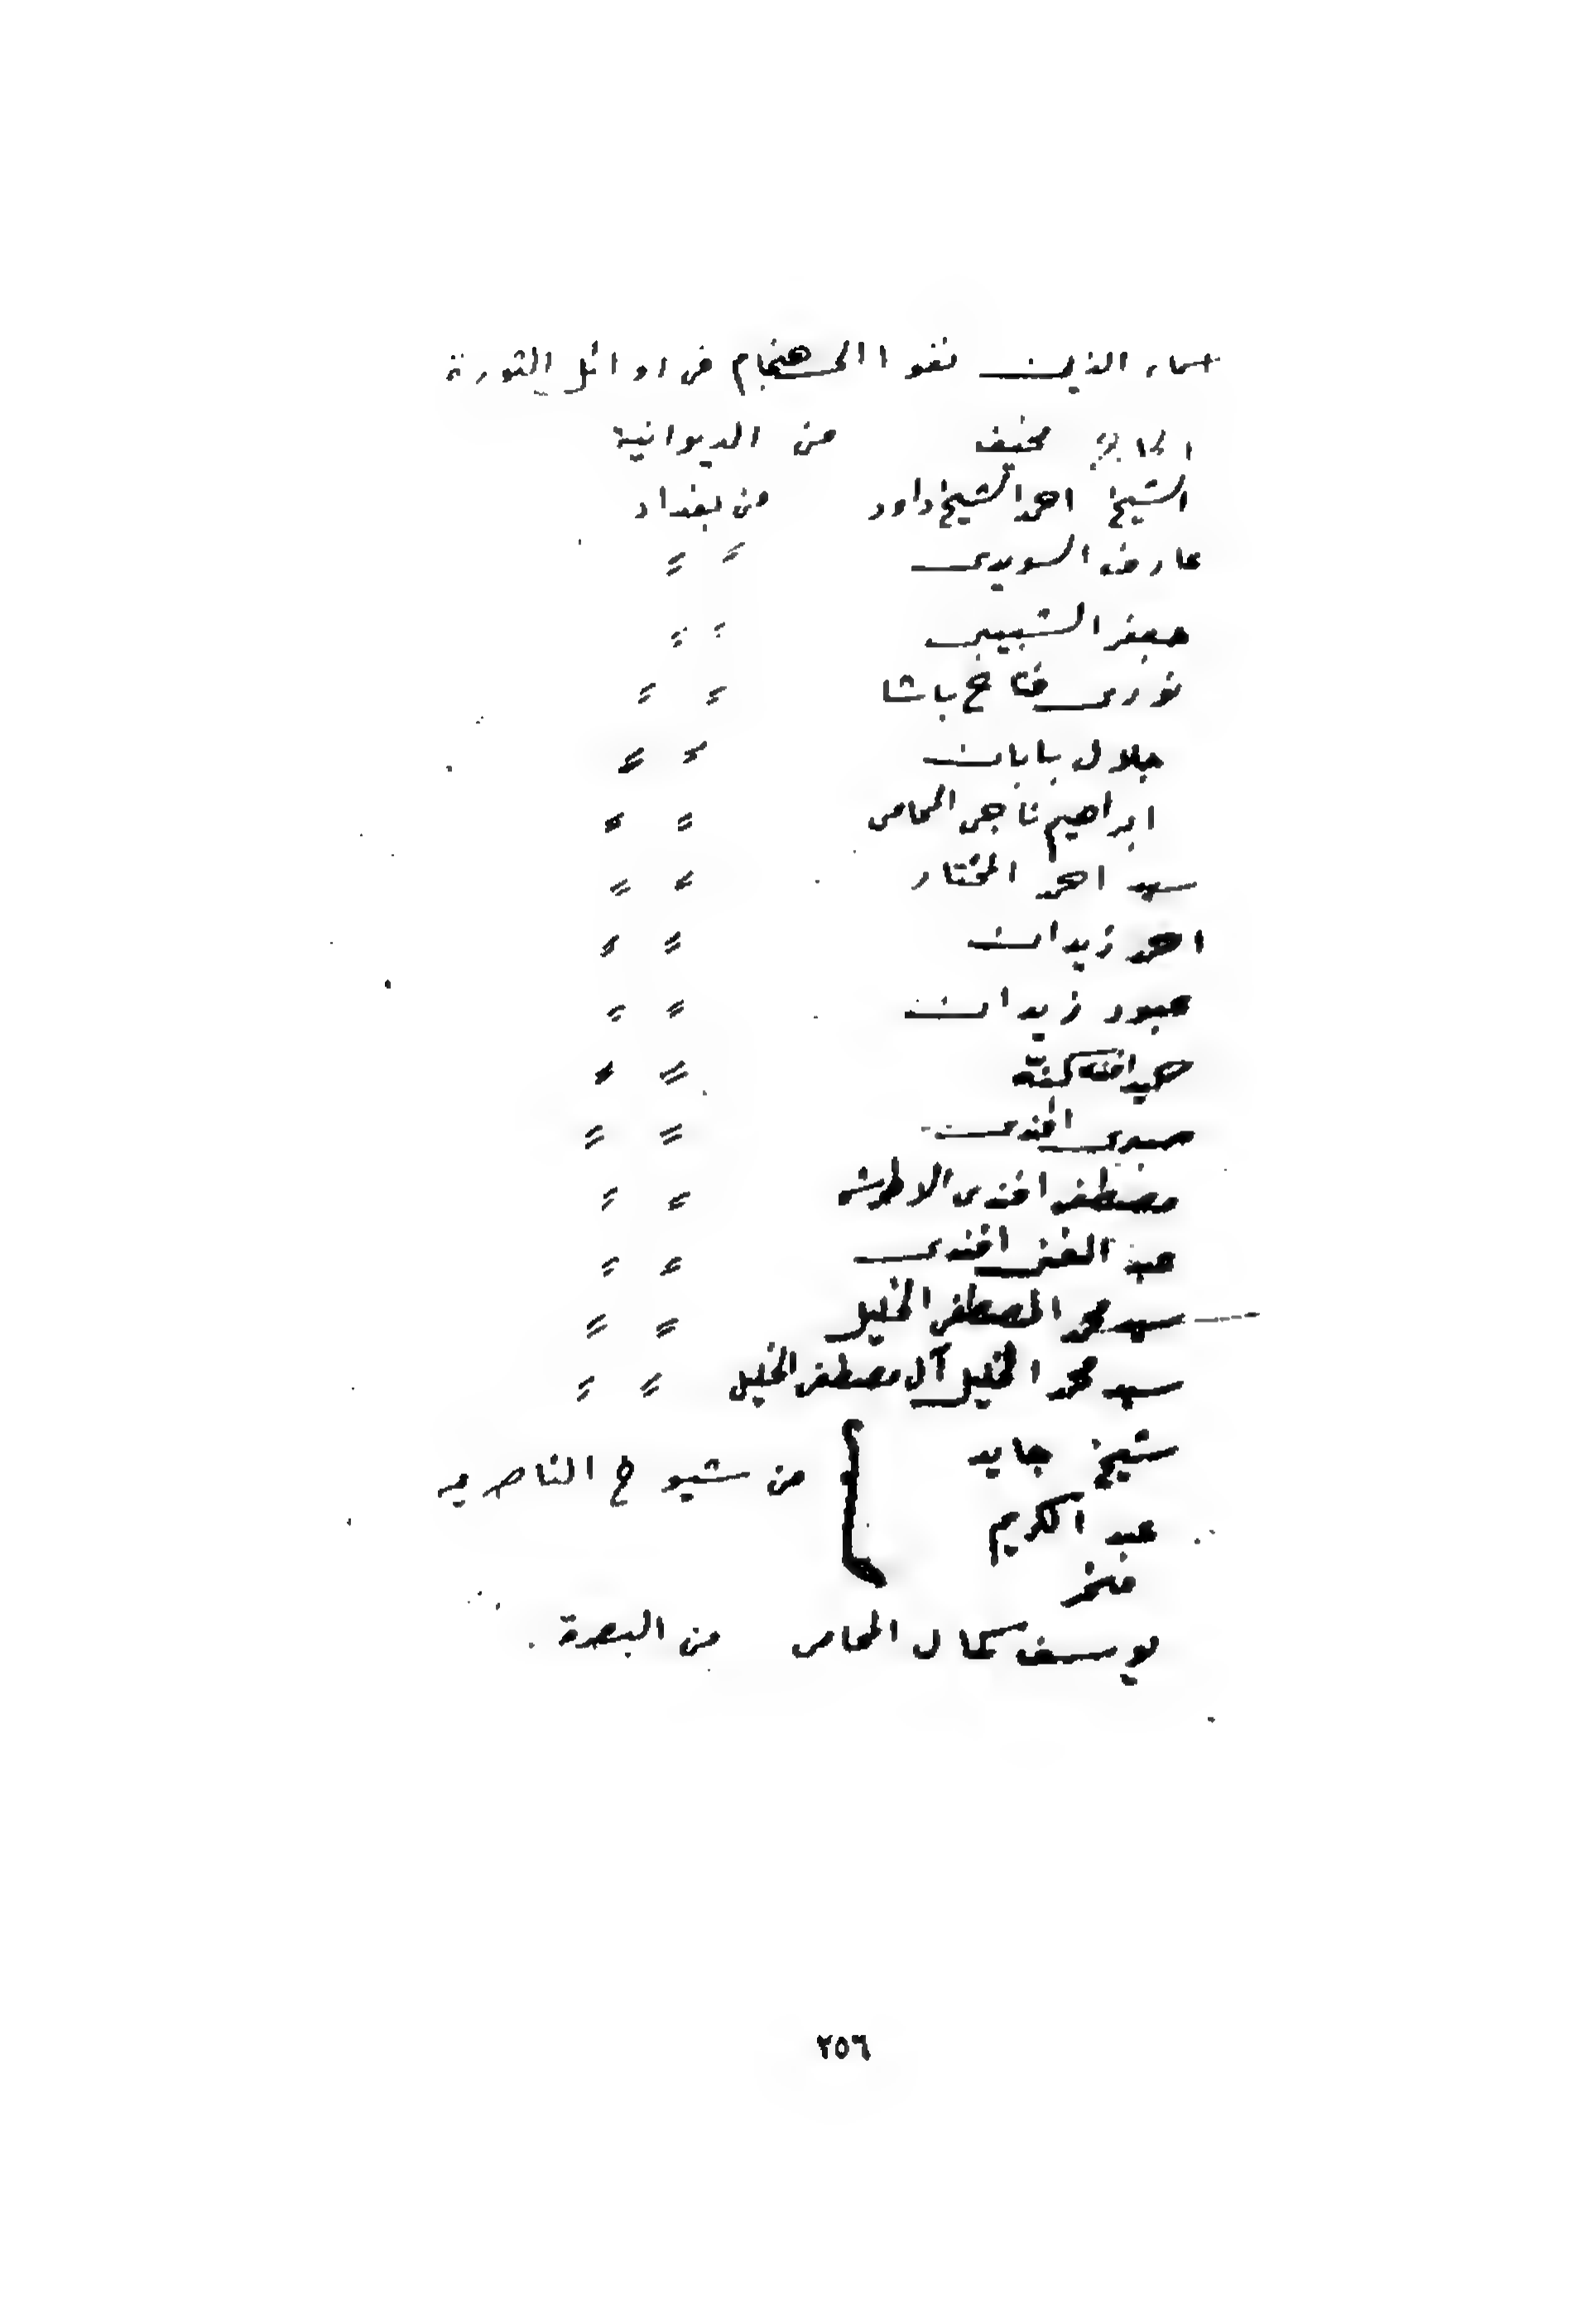 اسماء الذين نفوا الى هنجام في اوائل الثورة
الحاج مخيف من الديوانية
الشيخ احمد الشيخ داود من بغداد
عارف السويدي〃 〃
جعفر الشبيبي 〃 〃
نوري فتاح باشا 〃 〃
جلال بابان 〃 〃
ابراهيم ناجي المحامي 〃 〃
سيد احمد المختار 〃 〃
احمد زيدان 〃 〃
عبود زيدان 〃 〃
حميد افندي كنه 〃 〃
صبري افندي 〃 〃
مصطفى افندي الاطرش 〃 〃
عبد الغني افندي 〃 〃
سيد محمد المصطفى الخليل 〃 〃
سيد محمد الخليل آل مصطفى الخليل 〃 〃
شيخ جايد
من شيوخ الناصريه
عبد الكريم
يوسف كمال المحامي من البصرة
٢٥٦